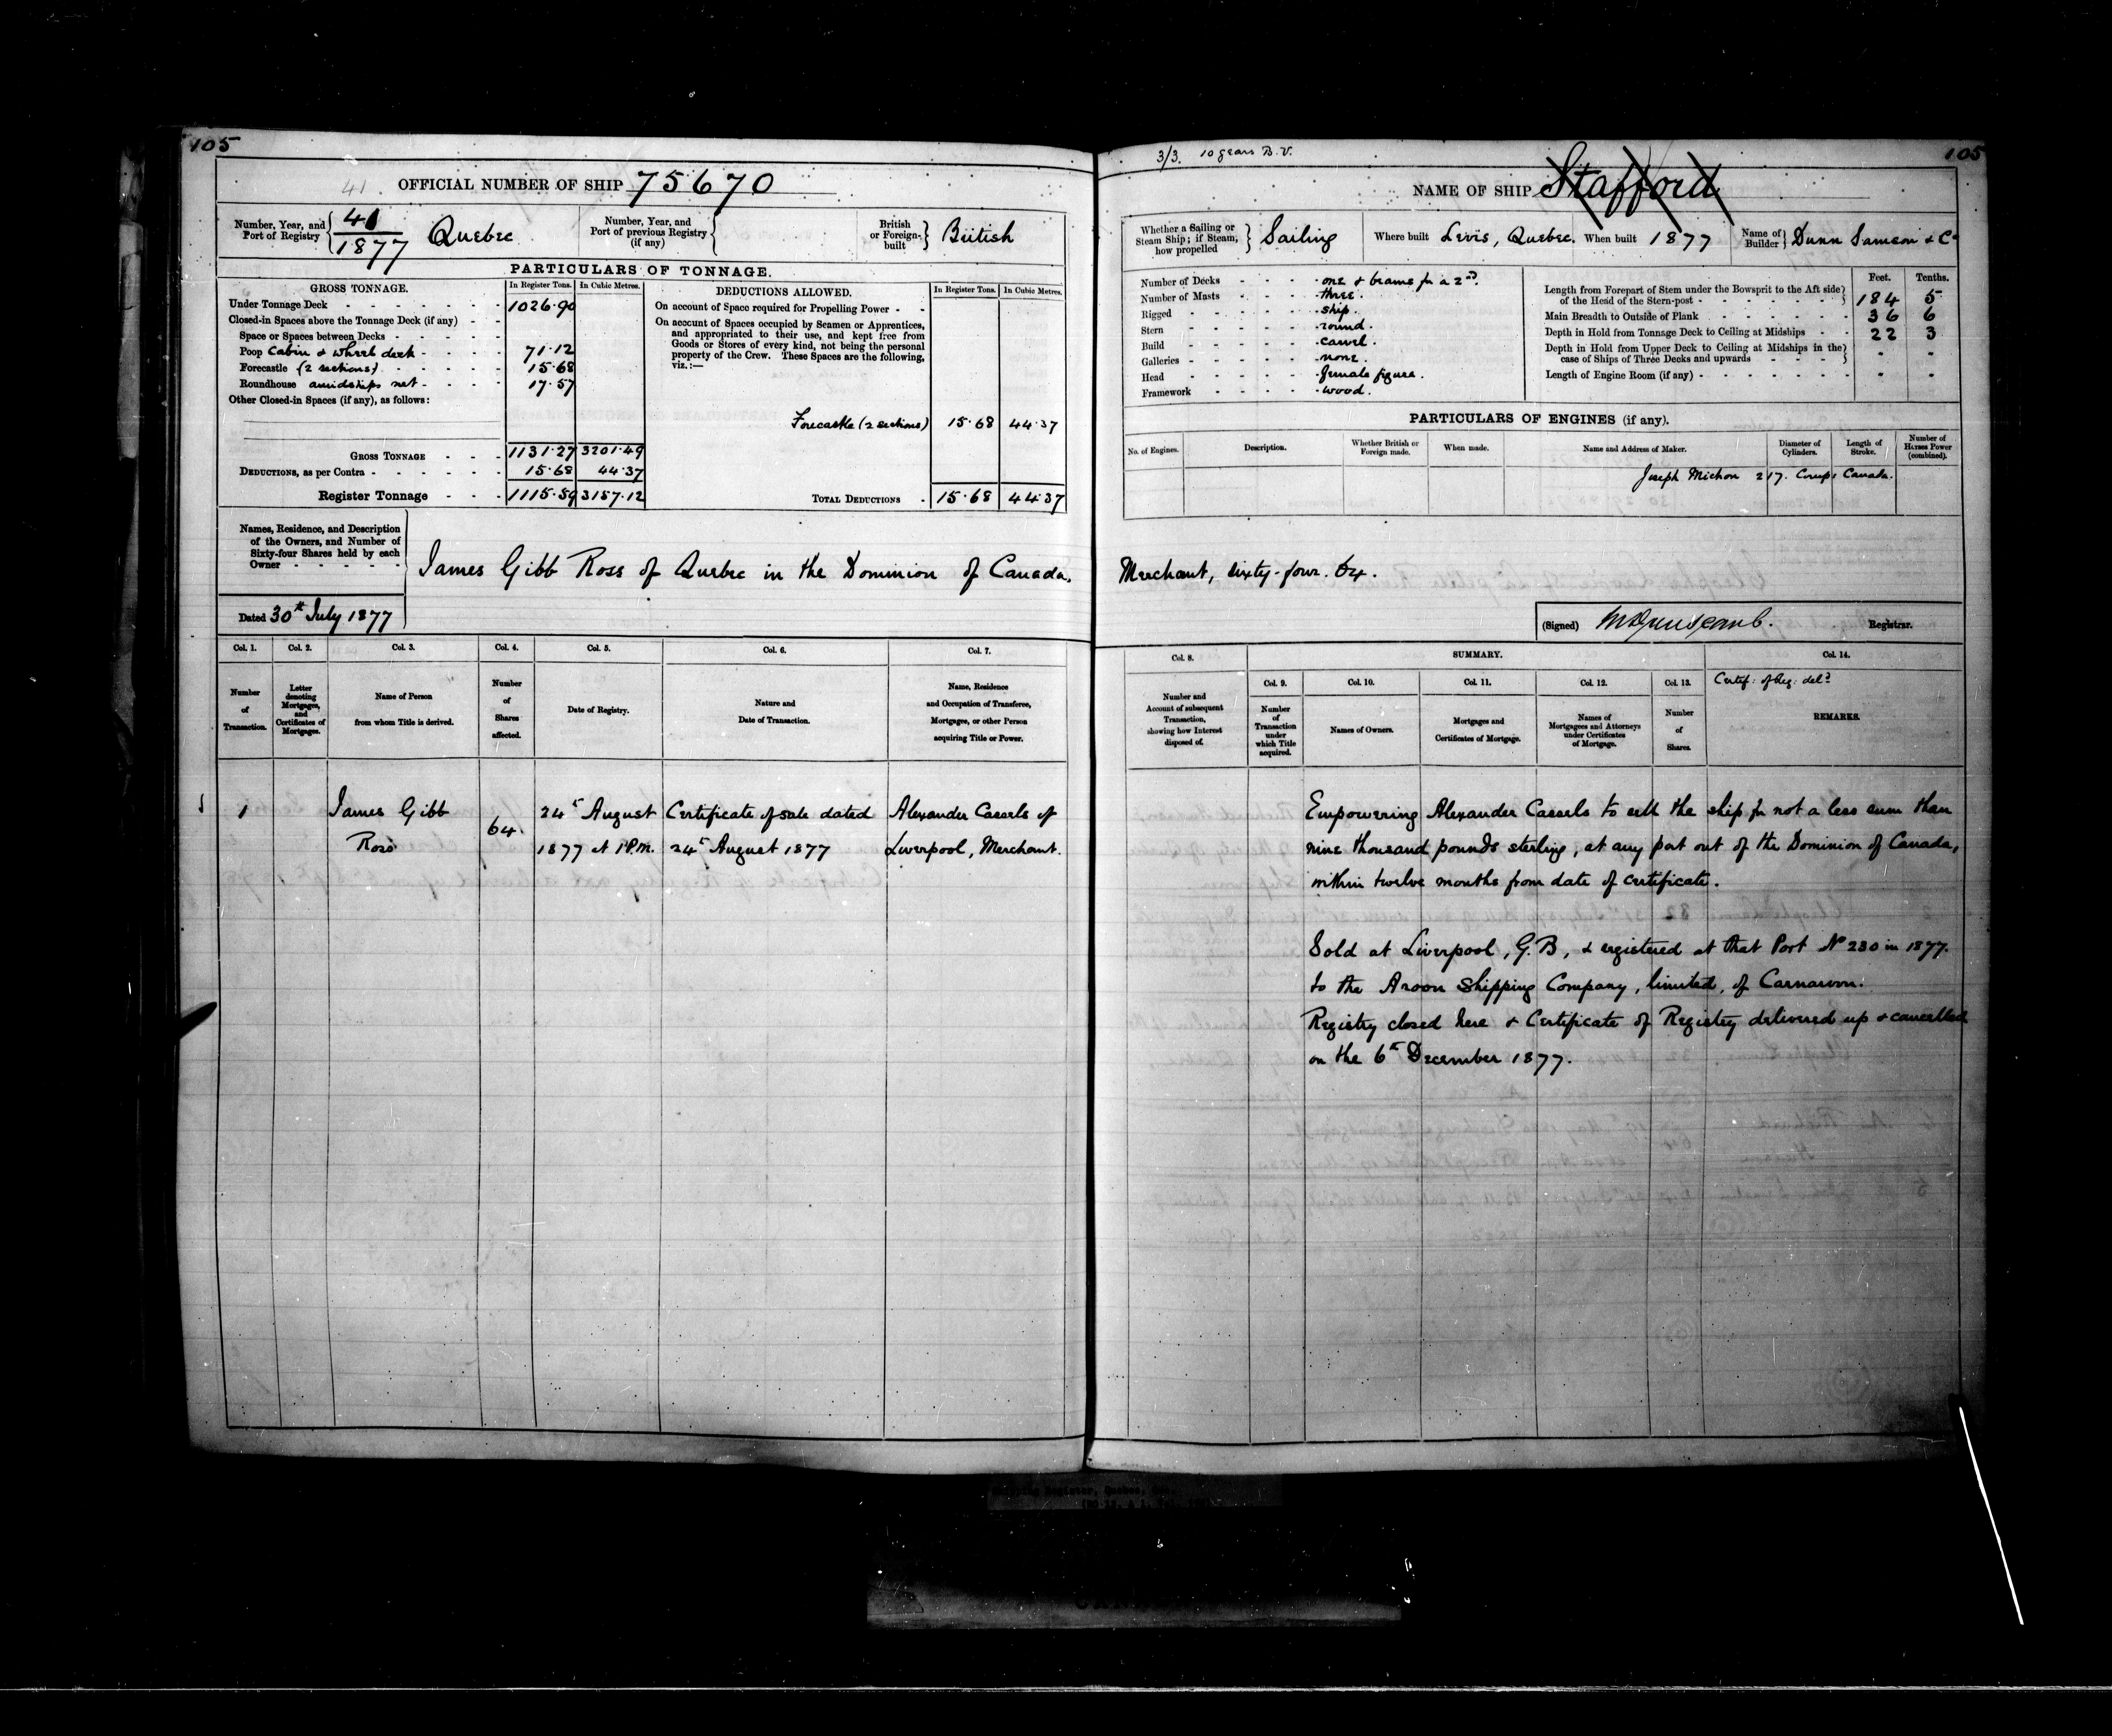 105
41. OFFICIAL NUMBER OF SHIP 75670
Number, Year, and Port of Registry { 41 / 1877 Quebec
Number, Year, and Port of previous Registry (if any) {
British or Foreign-built } British
PARTICULARS OF TONNAGE.
GROSS TONNAGE. In Register Tons. In Cubic Metres.
Under Tonnage Deck - - - 1026.90
Closed-in Spaces above the Tonnage Deck (if any) - -
Space or Spaces between Decks - - -
Poop Cabin & Wheel deck - - - 71.12
Forecastle (2 sections) - - - 15.68
Roundhouse amidships net - - - 17.57
Other Closed-in Spaces (if any), as follows:
GROSS TONNAGE - - - 1131.27 3201.49
DEDUCTIONS, as per Contra - - - 15.68 44.37
Register Tonnage - - - 1115.59 3157.12
DEDUCTIONS ALLOWED. In Register Tons. In Cubic Metres.
On account of Space required for Propelling Power - -
On account of Spaces occupied by Seamen or Apprentices,
and appropriated to their use, and kept free from
Goods or Stores of every kind, not being the personal
property of the Crew. These Spaces are the following,
viz.:—
Forecastle (2 sections) 15.68 44.37
TOTAL DEDUCTIONS - 15.68 44.37
Names, Residence, and Description
of the Owners, and Number of
Sixty-four Shares held by each
Owner - - - - -
James Gibb Ross of Quebec in the Dominion of Canada.
Dated 30th July 1877
Col. 1. Col. 2. Col. 3. Col. 4. Col. 5. Col. 6. Col. 7.
Number of Transaction.
Letter denoting Mortgages, and Certificates of Mortgages.
Name of Person from whom Title is derived.
Number of Shares affected.
Date of Registry.
Nature and Date of Transaction.
Name, Residence and Occupation of Transferee, Mortgagee, or other Person acquiring Title or Power.
1 James Gibb 64. 24th August Certificate of sale dated Alexander Cassels of
Ross 1877 at 1 P.M. 24th August 1877 Liverpool, Merchant.
3/3. 10 years B.V.
105
NAME OF SHIP Stafford
Whether a Sailing or Steam Ship; if Steam, how propelled } Sailing
Where built Levis, Quebec. When built 1877
Name of Builder } Dunn Samson & Co
Number of Decks - - - one & beams for a 2nd.
Number of Masts - - - three.
Rigged - - - ship.
Stern - - - round.
Build - - - carvel.
Galleries - - - none.
Head - - - female figure.
Framework - - - wood.
Feet. Tenths.
Length from Forepart of Stem under the Bowsprit to the Aft side of the Head of the Stern-post - - - } 184 5
Main Breadth to Outside of Plank - - - 36 6
Depth in Hold from Tonnage Deck to Ceiling at Midships - - 22 3
Depth in Hold from Upper Deck to Ceiling at Midships in the case of Ships of Three Decks and upwards - - - } - -
Length of Engine Room (if any) - - - - -
PARTICULARS OF ENGINES (if any).
No. of Engines. Description. Whether British or Foreign made. When made. Name and Address of Maker. Diameter of Cylinders. Length of Stroke. Number of Horses Power (combined).
Joseph Michon 217. Canada.
Merchant, sixty-four. 64.
(Signed) Registrar.
Col. 8. SUMMARY. Col. 14.
Col. 9. Col. 10. Col. 11. Col. 12. Col. 13.
Number and Account of subsequent Transaction, showing how Interest disposed of.
Number of Transaction under which Title acquired.
Names of Owners.
Mortgages and Certificates of Mortgage.
Names of Mortgagees and Attorneys under Certificates of Mortgage.
Number of Shares.
Certif: of Reg: deld
REMARKS.
Empowering Alexander Cassels to sell the ship for not a less sum than
nine thousand pounds sterling, at any port out of the Dominion of Canada,
within twelve months from date of certificate.
Sold at Liverpool, G.B, & registered at that Port No 230 in 1877.
to the Arvon Shipping Company, limited, of Carnarvon.
Registry closed here & Certificate of Registry delivered up & cancelled
on the 6th December 1877.